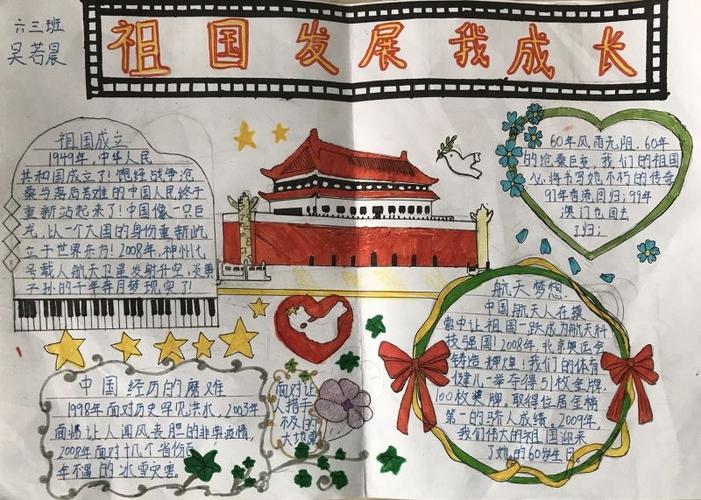 六三班
吴若晨
祖国发展我成长
祖国成立
1949年,中华人民
共和国成立了!饱经战争沧
桑与落后苦难的中国人民终于
重新站起来了!中国像一只巨
龙,以一个大国的身份重新屹
立于世界东方!2008年,神州七
号载人航天卫星发射升空,炎黄
子孙的千年奔月梦现实了!
60年风雨无阻,60年
的沧桑巨变,我们的祖国
必将书写她不朽的传奇
97年香港回归;99年
澳门也回去
了归;
航天梦想:
中国航天人在摸
索中让祖国一跃成为航天科
技强国!2008年北京奥运会
铸造辉煌!我们的体育
健儿一举夺得51枚金牌,
100枚奖牌,取得位居金牌
第一的骄人成绩。2009年,
我们伟大的祖国迎来
了她的60岁生日。
中国经历的磨难
1998年面对历史罕见洪水,2003年
面临让人闻风丧胆的非典疫情,
2008年面对十几个省份百
年不遇的冰雪灾害。
面对让
人措手
不及的
大地震